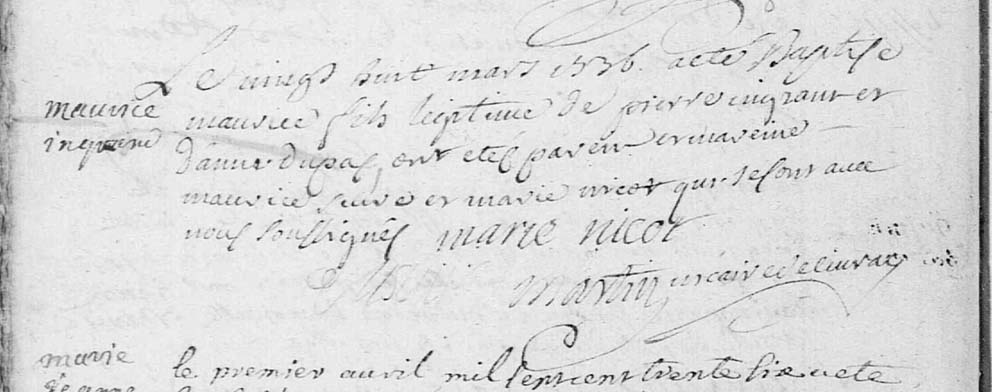 maurice
ingrand
Le vingt huit mars 1736. a eté Baptisé
maurice fils legitime de pierre ingrant et
d'anne dupas, ont etés parein et mareine
maurice et marie nicot qui se sont avec
nous soussignés marie nicot
martin vicaire de civray
marie
jeanne
le premier avril mil sept cent trente six a ete